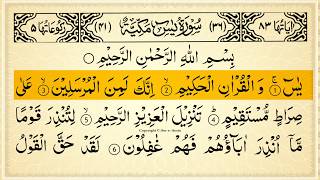 اٰيَاتُهَا ٨٣ (٣٦) سُوْرَةُ يٰسٓ مَكِّيَّةٌ (٤١) رُكُوْعَاتُهَا ٥
بِسْمِ اللّٰهِ الرَّحْمٰنِ الرَّحِيْمِ
يٰسٓ ۝١ وَ الْقُرْاٰنِ الْحَكِيْمِ ۝٢ اِنَّكَ لَمِنَ الْمُرْسَلِيْنَ ۝٣ عَلٰى
صِرَاطٍ مُّسْتَقِيْمٍ ۝٤ تَنْزِيْلَ الْعَزِيْزِ الرَّحِيْمِ ۝٥ لِتُنْذِرَ قَوْمًا
مَّاۤ اُنْذِرَ اٰبَآؤُهُمْ فَهُمْ غٰفِلُوْنَ ۝٦ لَقَدْ حَقَّ الْقَوْلُ